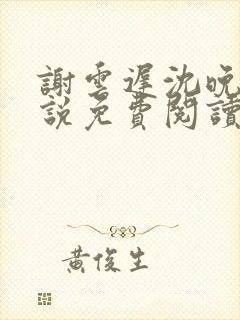 謝雲遲沈晚
說免費閱讀
黃俊生